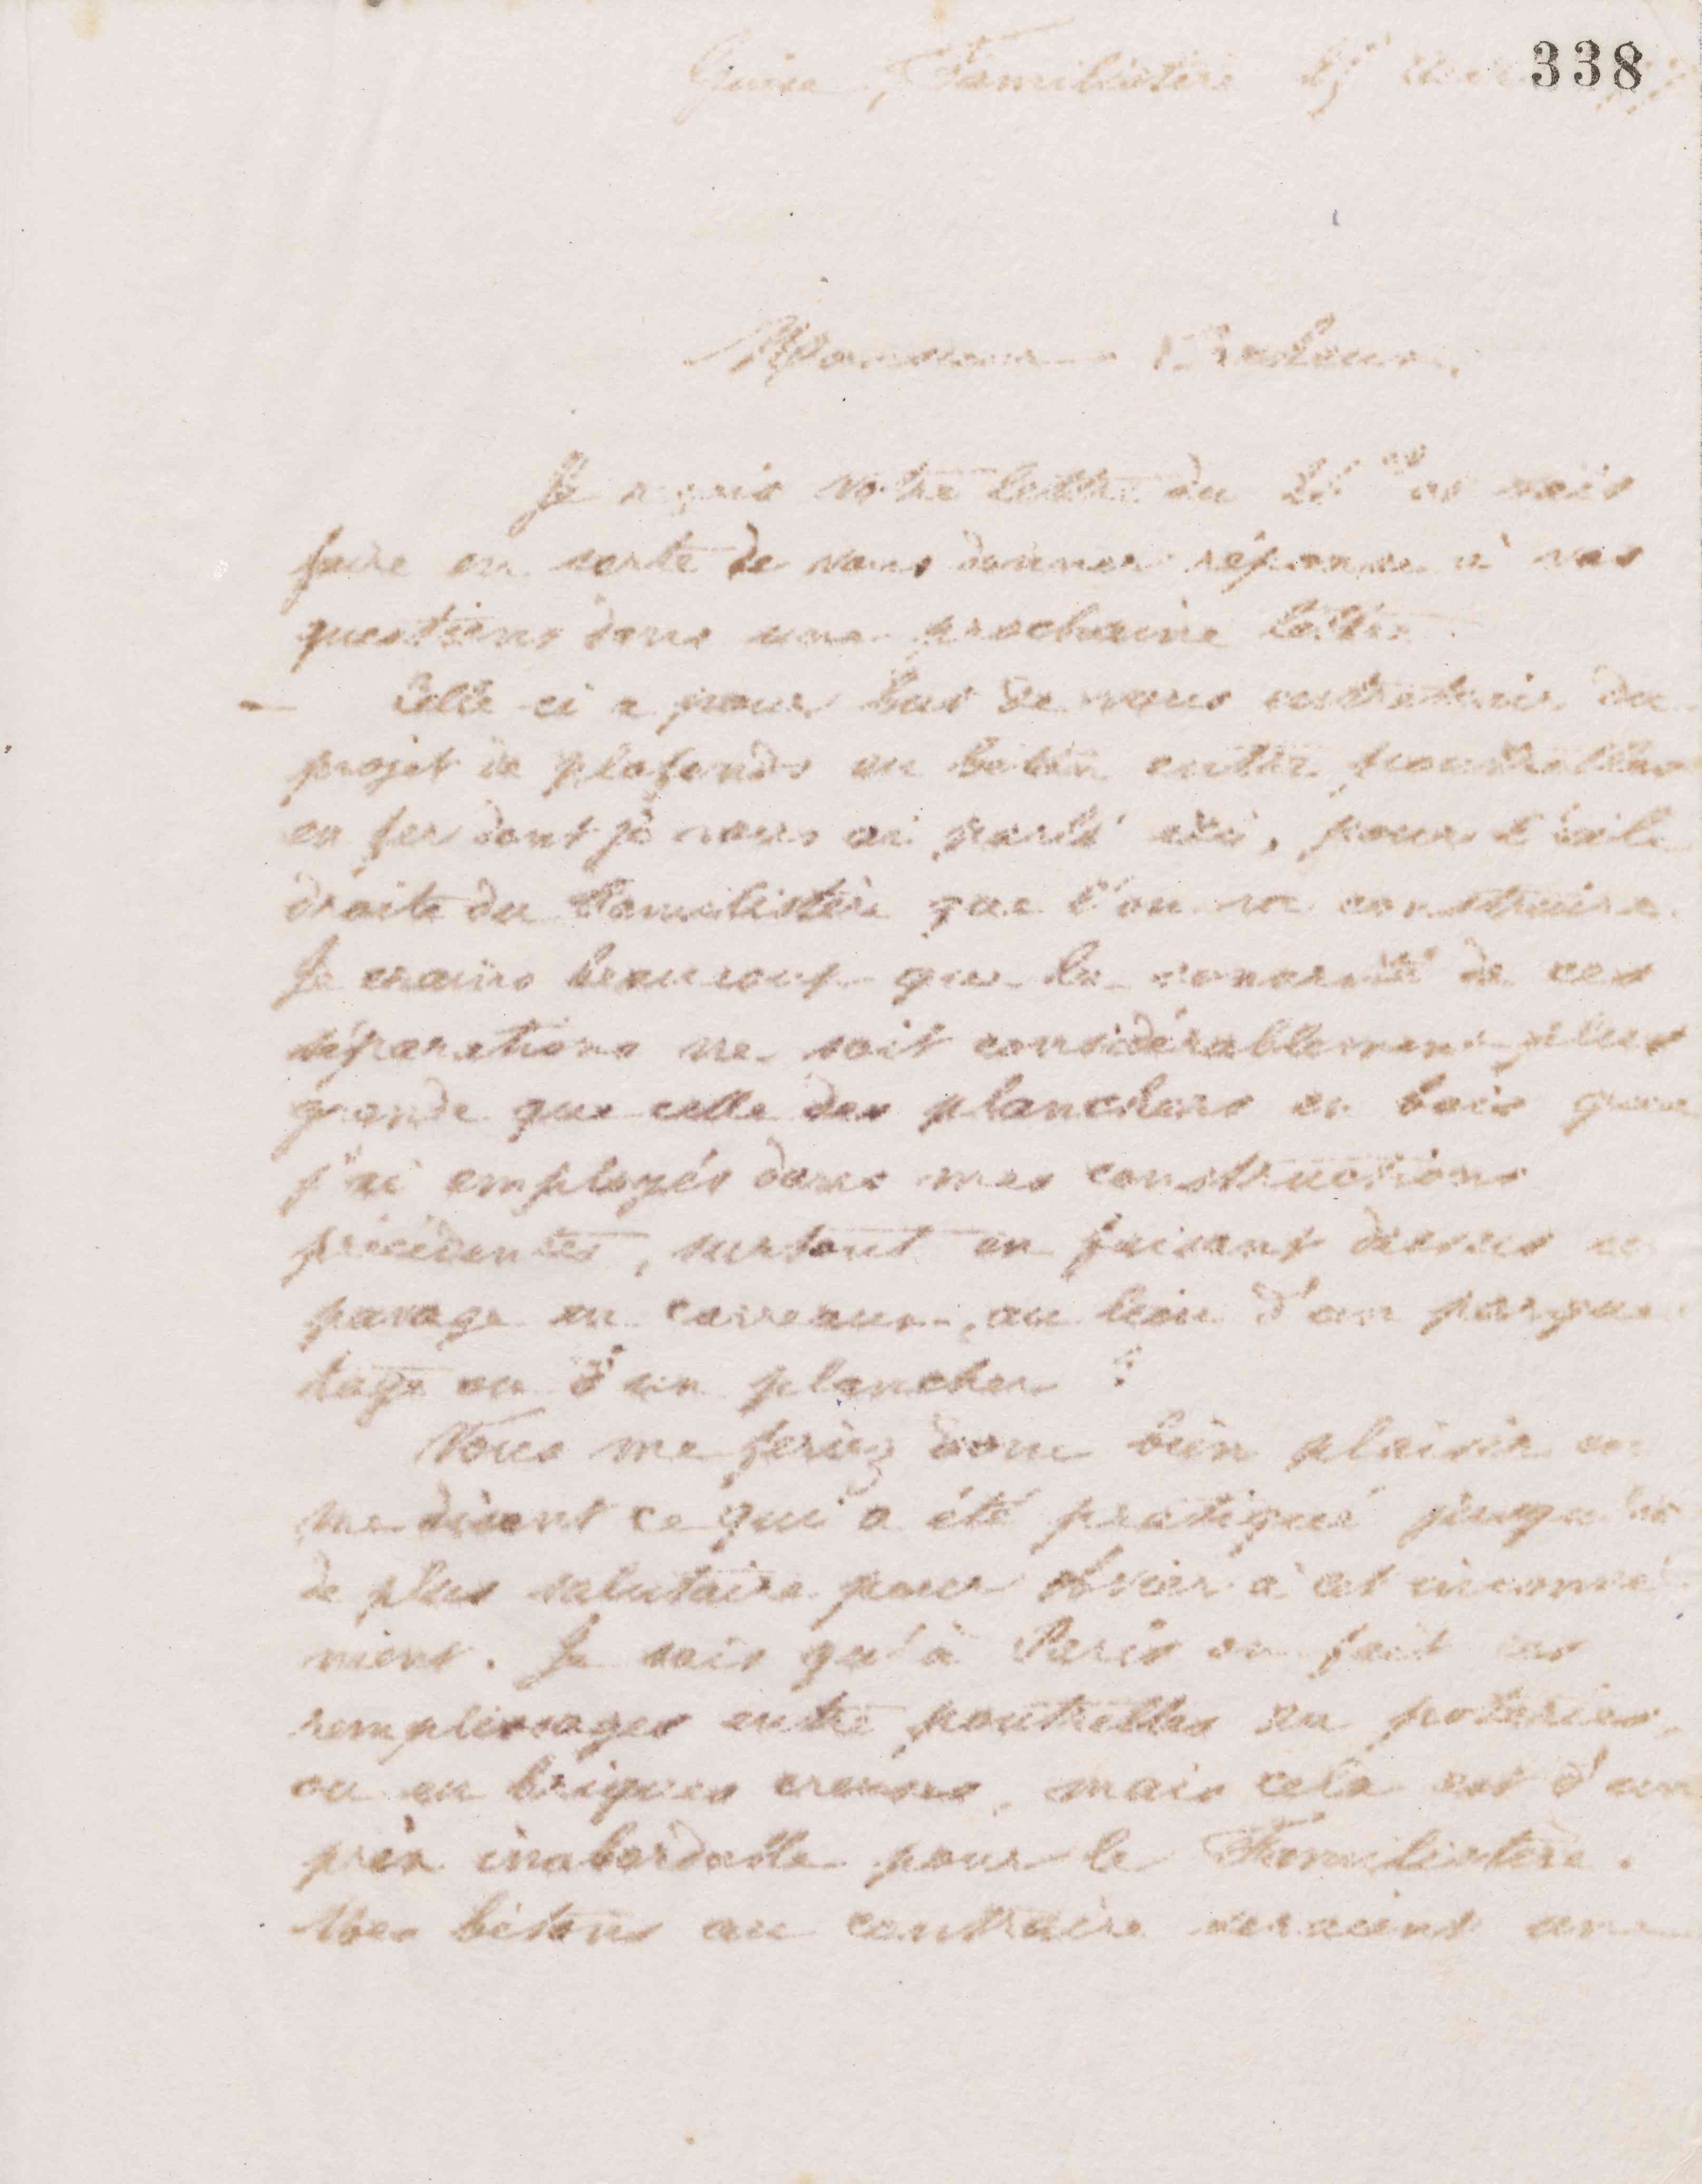 338
Guise, Familistère
Monsieur
Je reçois votre lettre du et vais
faire en sorte de vous donner réponse à vos
questions dans une prochaine lettre.
Celle ci a pour but de vous entretenir du
projet de plafonds en béton entre poutrelles
en fer dont je vous ai parlé ici, pour l'aile
droite du Familistère que l'on va construire.
Je crains beaucoup que la sonorité de ces
séparations ne soit considérablement plus
grande que celle des planchers en bois que
j'ai employés dans mes constructions
précédentes, surtout en faisant dessus un
pavage en carreaux, au lieu d'un parque
tage ou d'un plancher ?
Vous me feriez donc bien plaisir en
me disant ce qui a été pratiqué jusqu'ici
de plus salutaire pour obvier à cet inconvé
nient. Je sais qu'à Paris on fait ces
remplissages entre poutrelles en poteries,
ou en briques creuses, mais cela est d'un
prix inabordable pour le Familistère.
Vos bétons au contraire seraient une